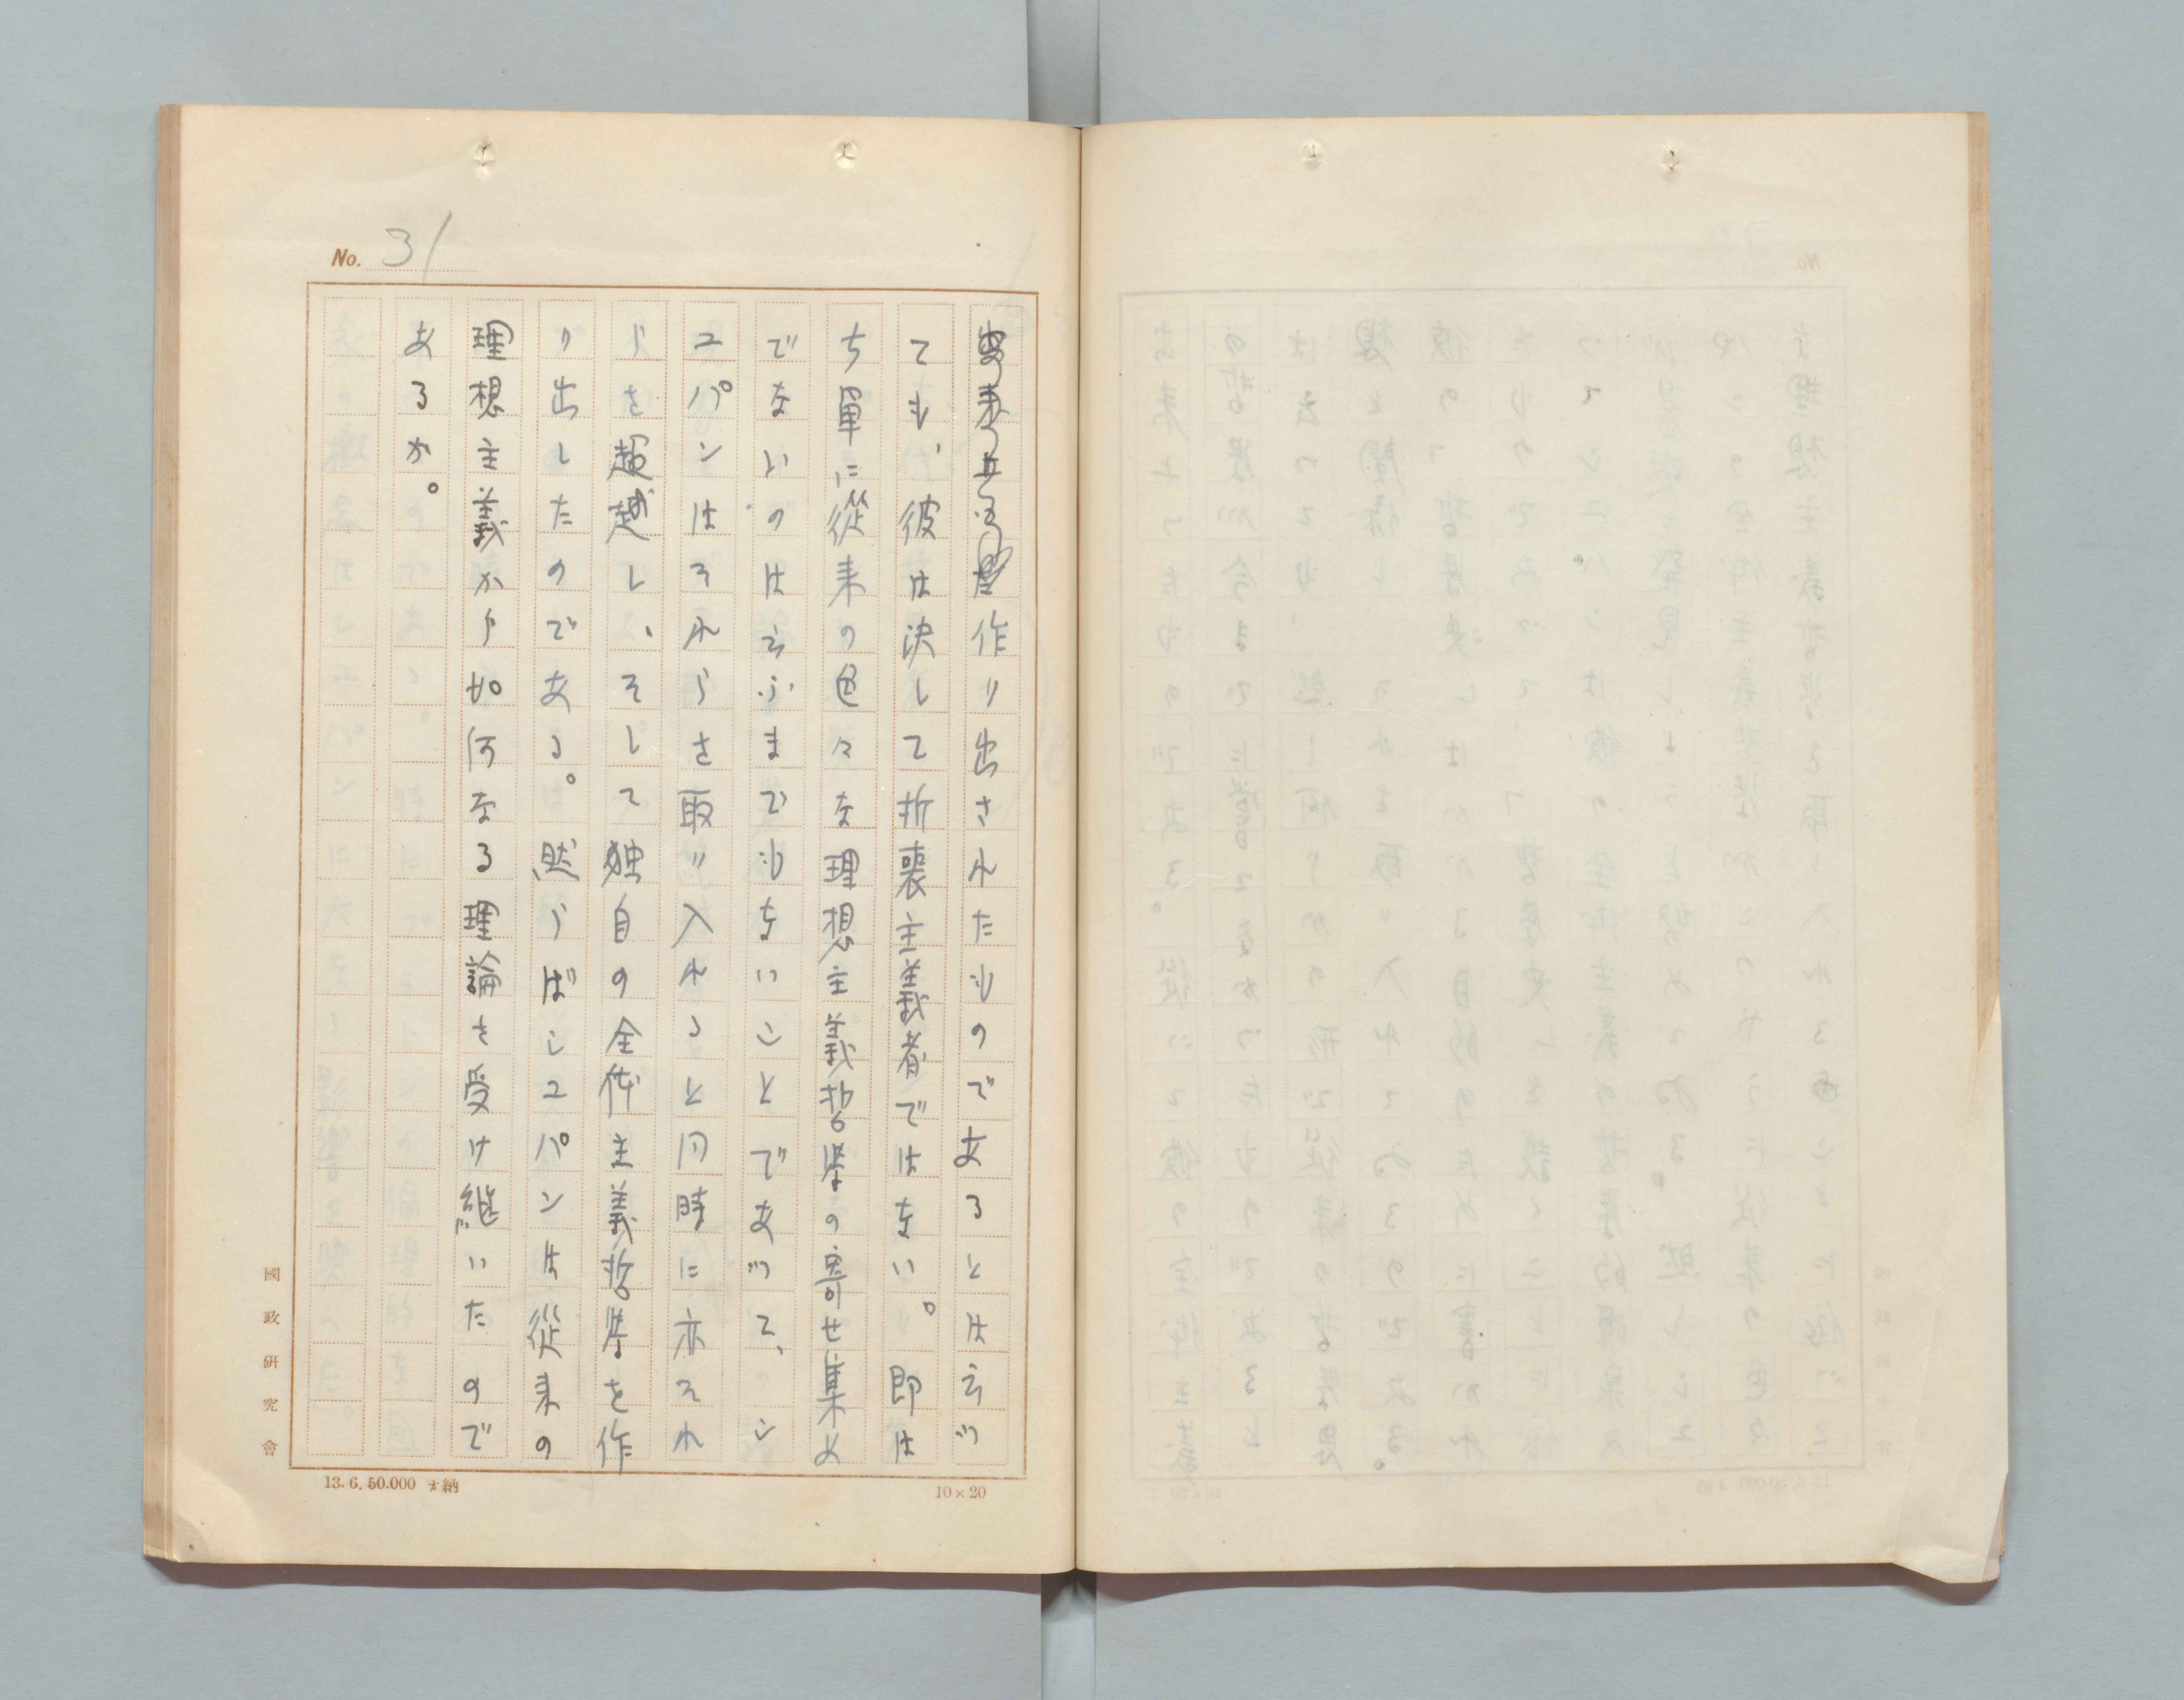 No. 31
作り出されたものであるとは云つ
ても、彼は決して折衷主義者ではない。即は
ち単に従来の色々な理想主義哲学の寄せ集め
でないのは云ふまでもないことであつて、シ
ユパンはそれらを取り入れると同時に亦それ
らを超越し、そして独自の全体主義哲学を作
り出したのである。然らばシユパンは従来の
理想主義から如何なる理論を受け継いたので
あるか。
國政研究會
13.6.50.000 ォ納
10×20